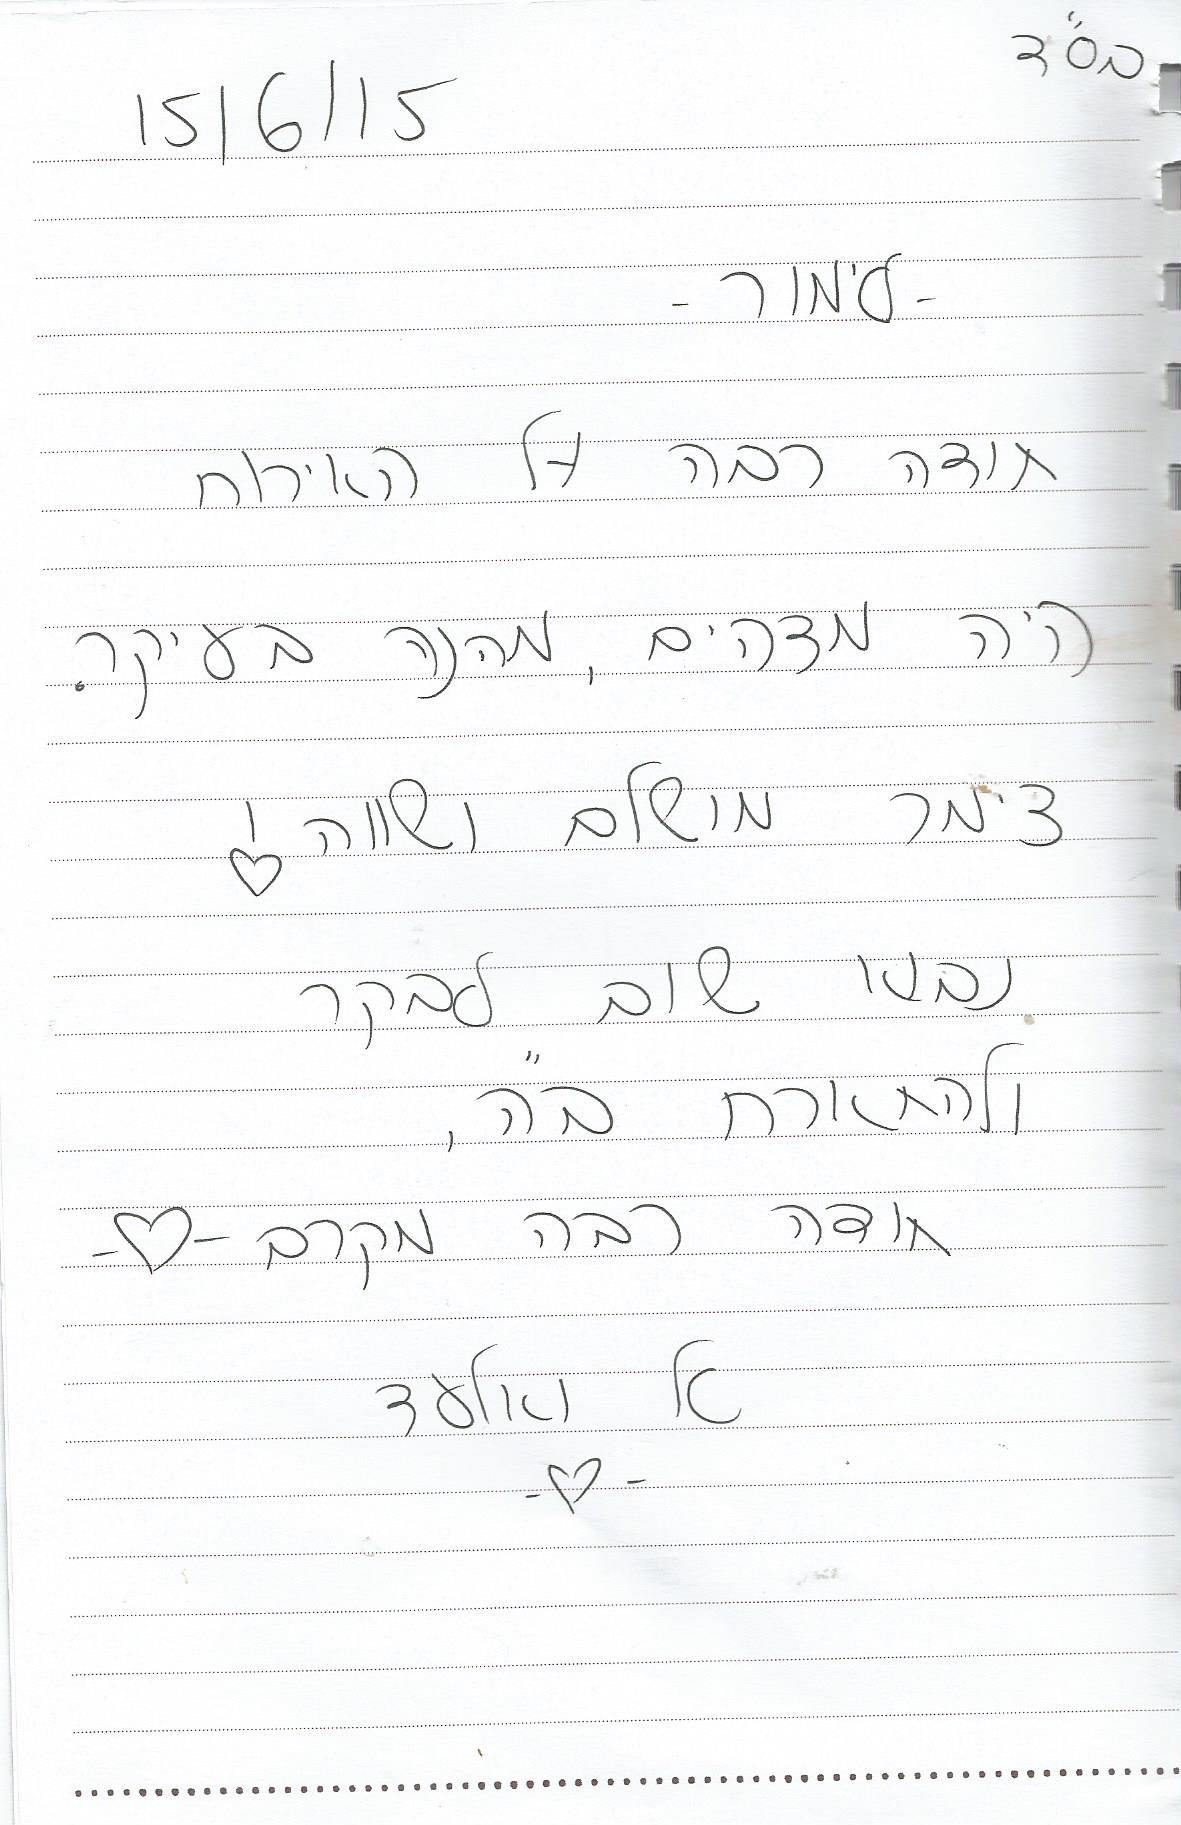 בס"ד
15/6/15
-לימור-
תודה רבה על האירוח
היה מדהים, מהנה בעיקר.
צימר מושלם ושווה!
נבוא שוב לבקר
ולהתארח ב"ה,
תודה רבה מקרב -♡-
אל ואלעד
-♡-